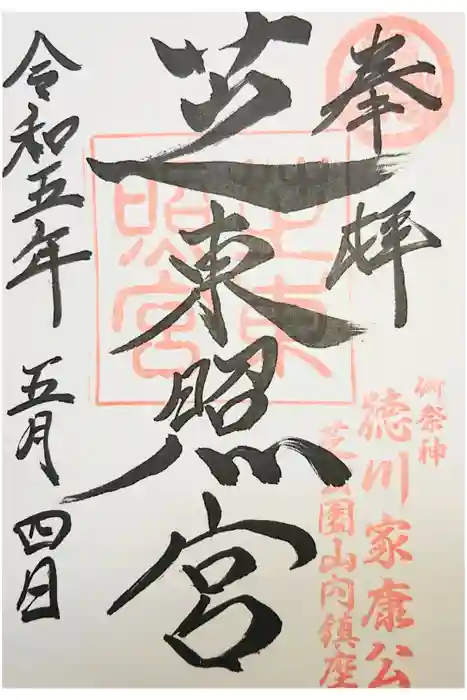 奉拝
芝東照宮
令和五年 五月 四日
芝東照宮
御祭神
徳川家康公
芝公園山内鎮座